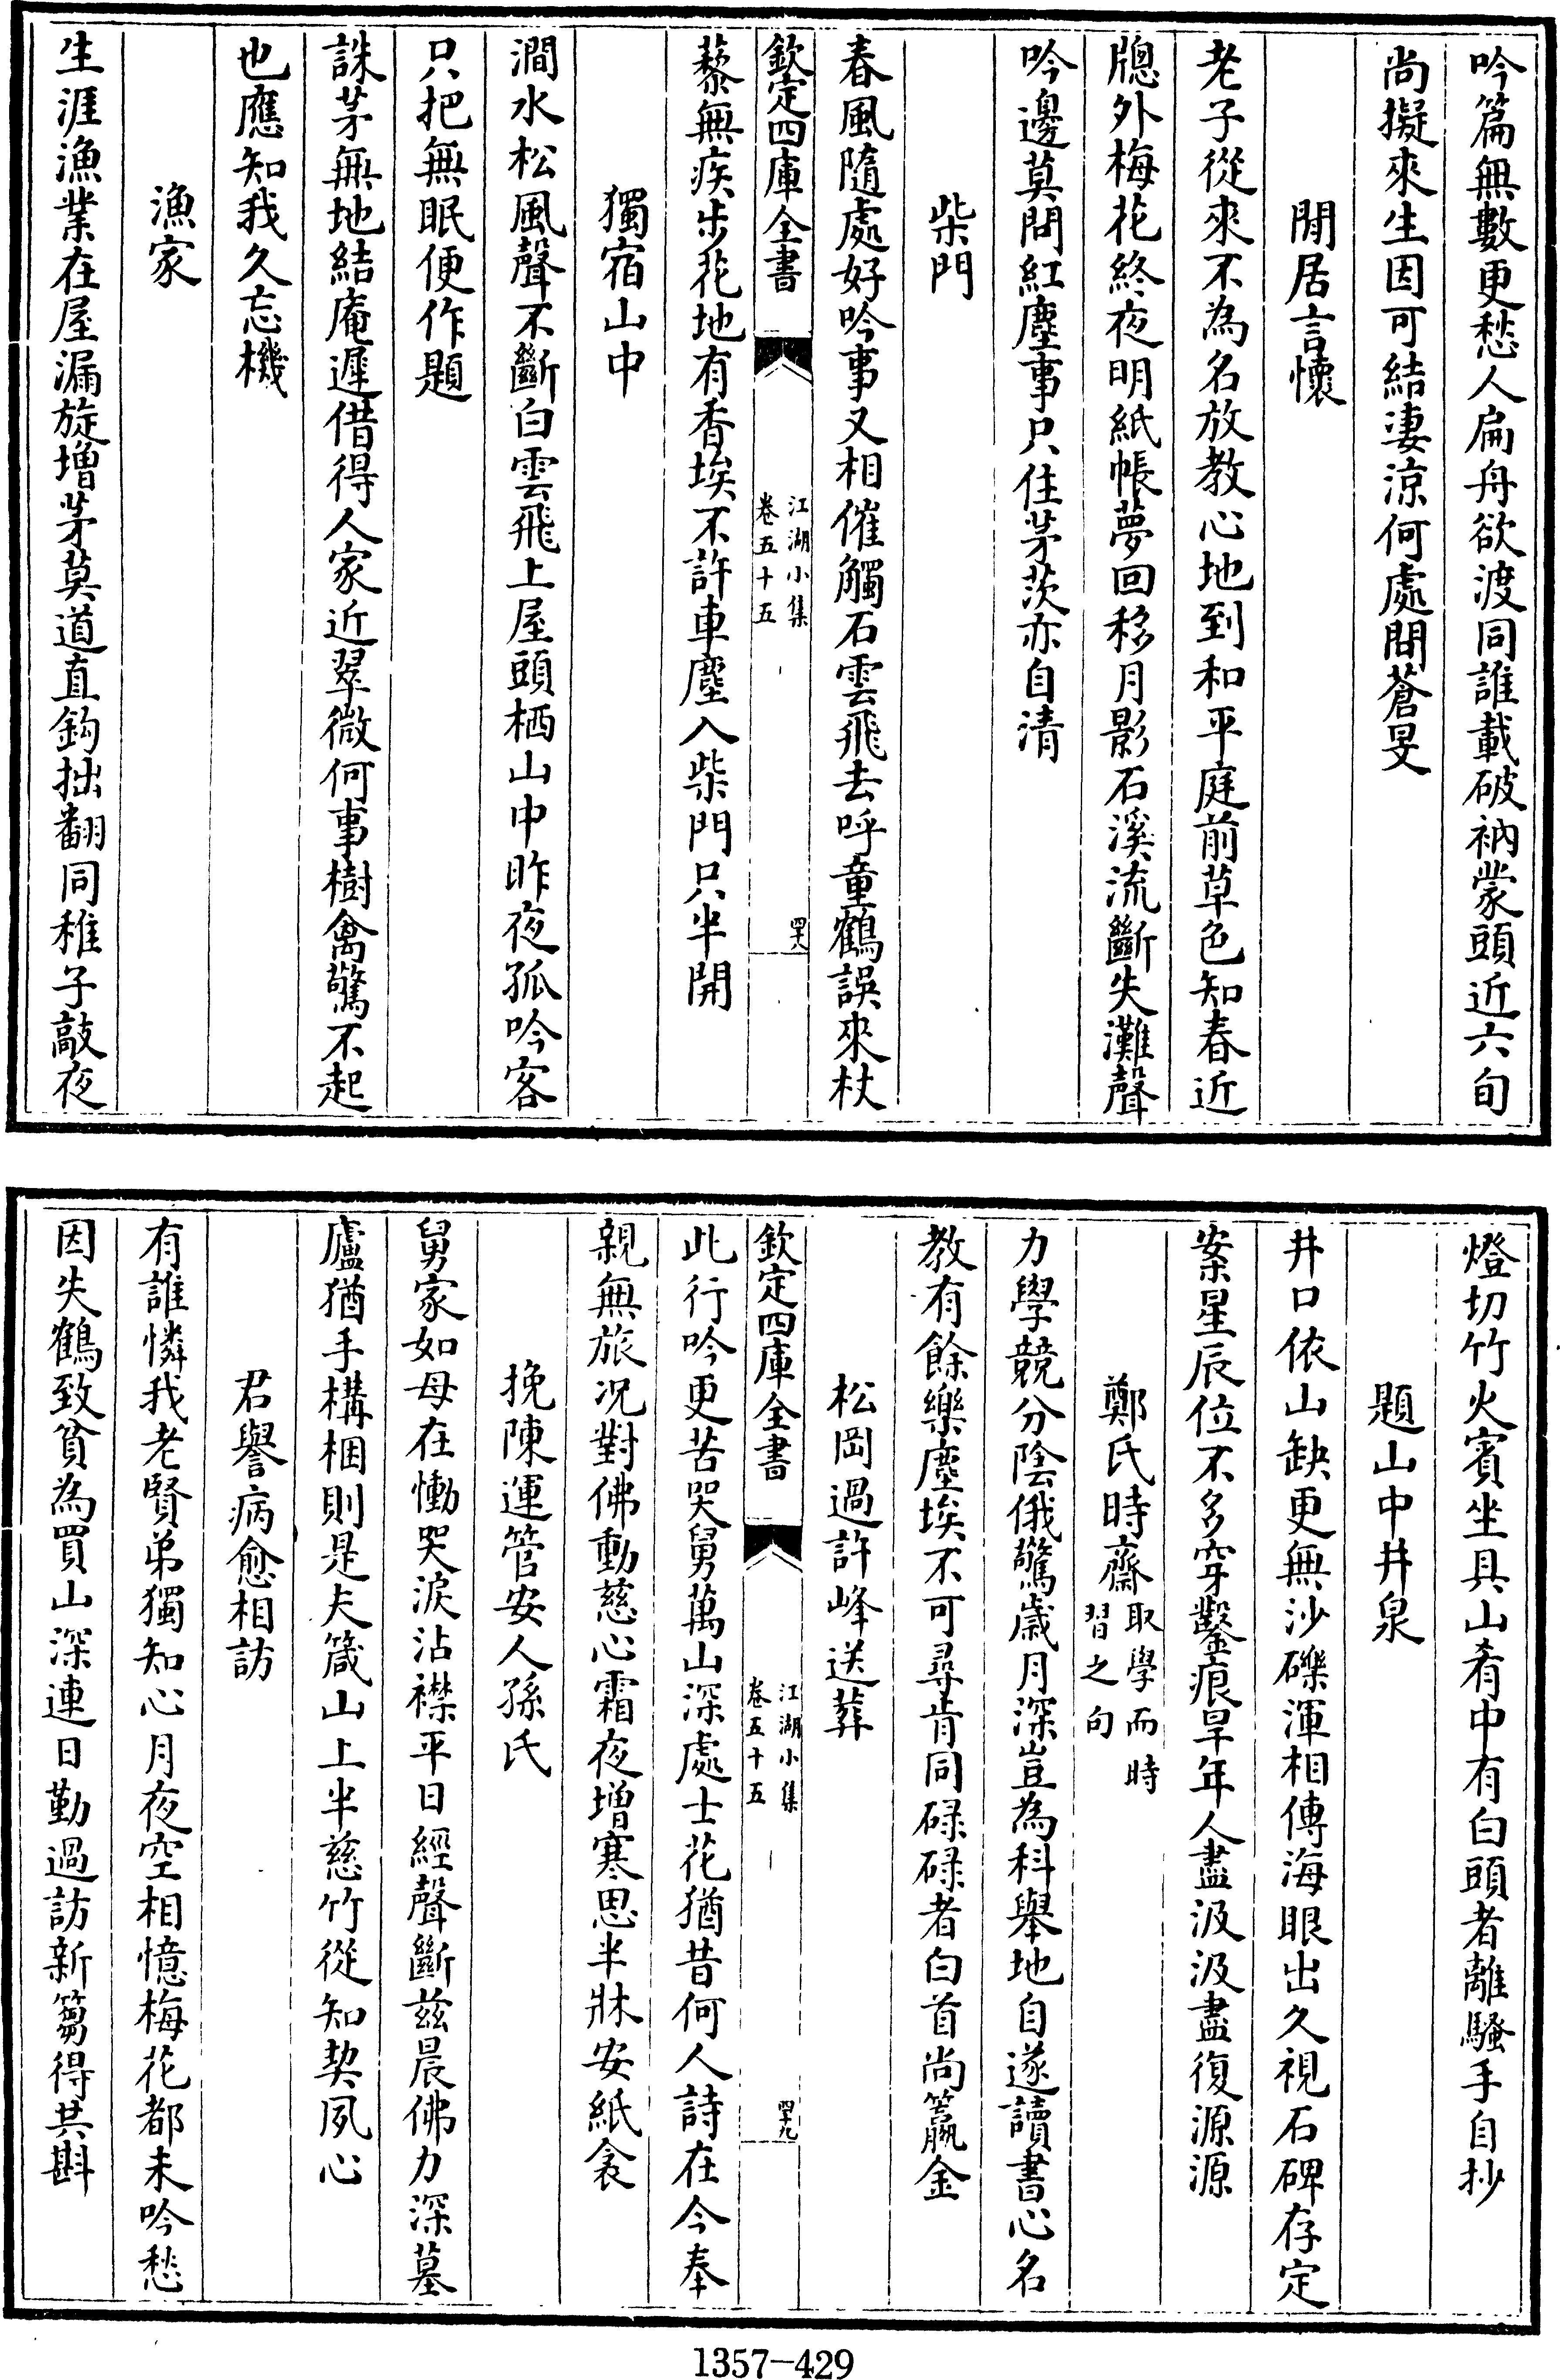 吟篇無數更愁人扁舟欲渡同誰載破衲蒙頭近六旬
尚擬來生因可結凄涼何處問蒼旻
閒居言懷
老子從來不為名放教心地到和平庭前草色知春近
牎外梅花終夜明紙帳夢回移月影石溪流斷失灘聲
吟邊莫問紅塵事只住茅茨亦自清
柴門
春風隨處好吟事又相催觸石雲飛去呼童鶴誤來杖
欽定四庫全書
江湖小集
卷五十五
四大
藜無疾步花地有香埃不許車塵入柴門只半開
獨宿山中
澗水松風聲不斷白雲飛上屋頭栖山中昨夜孤吟客
只把無眠便作題
誅茅無地結庵遲借得人家近翠微何事樹禽驚不起
也應知我久忘機
漁家
生涯漁業在屋漏旋增茅莫道直鈎拙翻同稚子敲夜
燈切竹火賓坐具山肴中有白頭者離騷手自抄
題山中井泉
井口依山缺更無沙礫渾相傳海眼出久視石碑存定
案星辰位不多穿鑿痕旱年人盡汲汲盡復源源
鄭氏時齋取學而時
習之句
力學競分陰俄驚歲月深豈為科舉地自遂讀書心名
教有餘樂塵埃不可尋肯同碌碌者白首尚籝金
松岡過許峰送葬
欽定四庫全書
江湖小集
卷五十五
四十九
此行吟更苦哭舅萬山深處士花猶昔何人詩在今奉
親無旅况對佛動慈心霜夜增寒思半牀安紙衾
挽陳運管安人孫氏
舅家如母在慟哭淚沾襟平日經聲斷兹晨佛力深墓
廬猶手構梱則是夫箴山上半慈竹從知契夙心
君譽病愈相訪
有誰憐我老賢弟獨知心月夜空相憶梅花都未吟愁
因失鶴致貧為買山深連日勤過訪新篘得共斟
1357-429